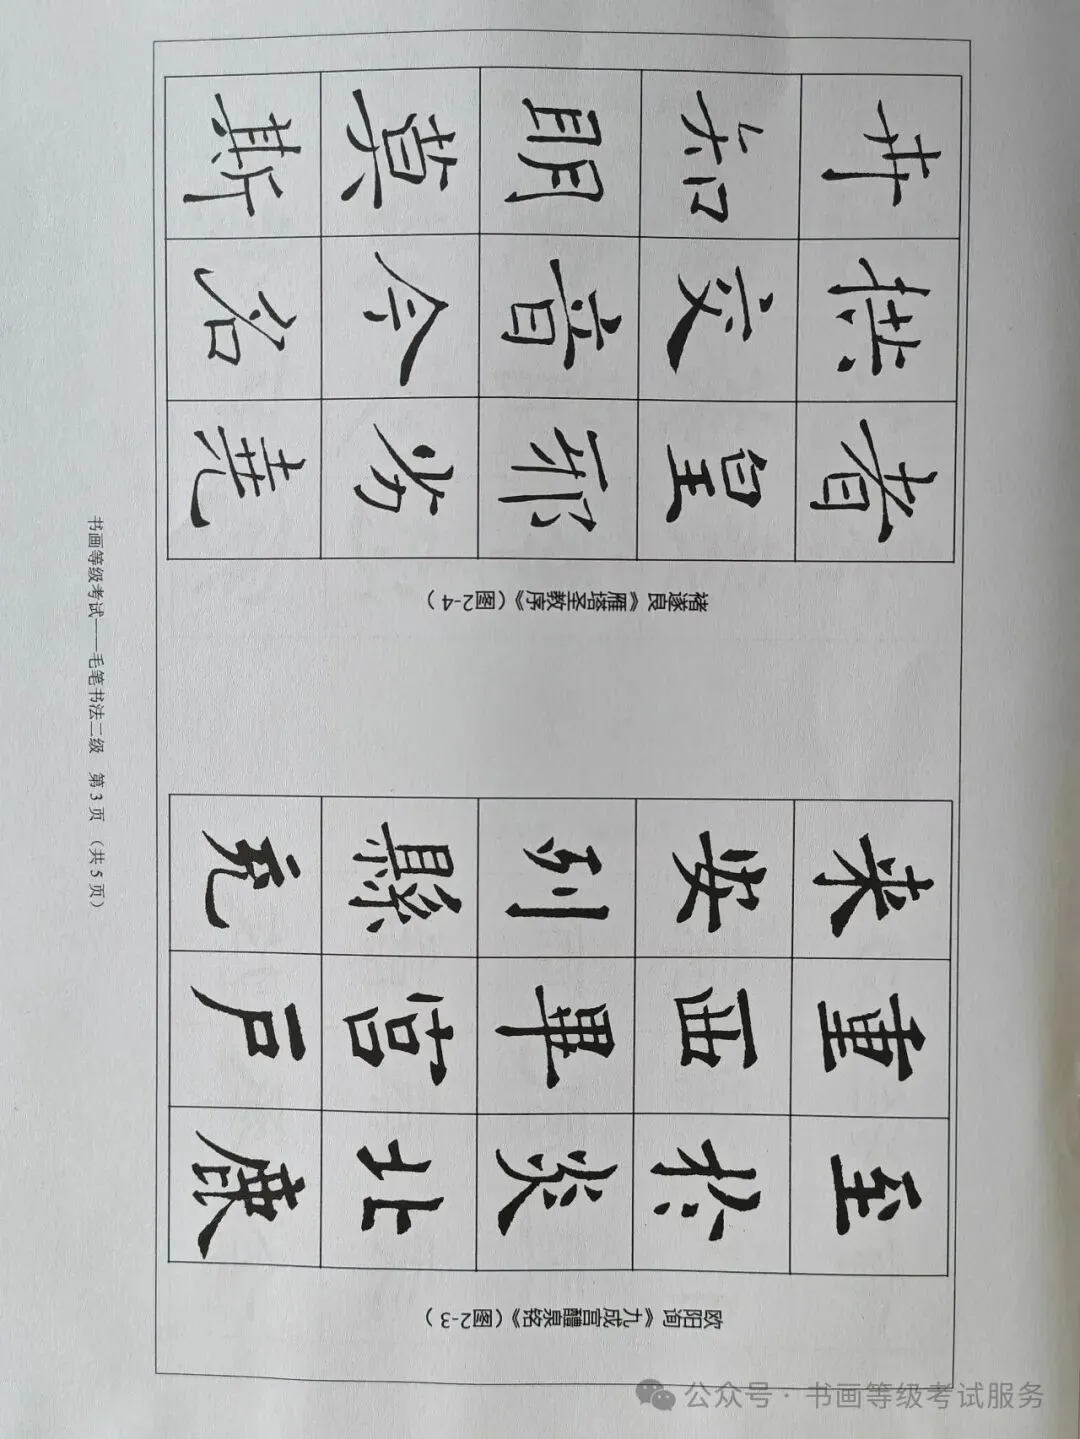 欧阳询《九成宫醴泉铭》（图2-3）
至於炎北
重西畢户
来安列縣充
褚遂良《雁塔圣教序》（图2-4）
者皇邪劣堯
拱交音今名
井知明莫斯
书画等级考试——毛笔书法二级 第3页（共5页）
公众号·书画等级考试服务